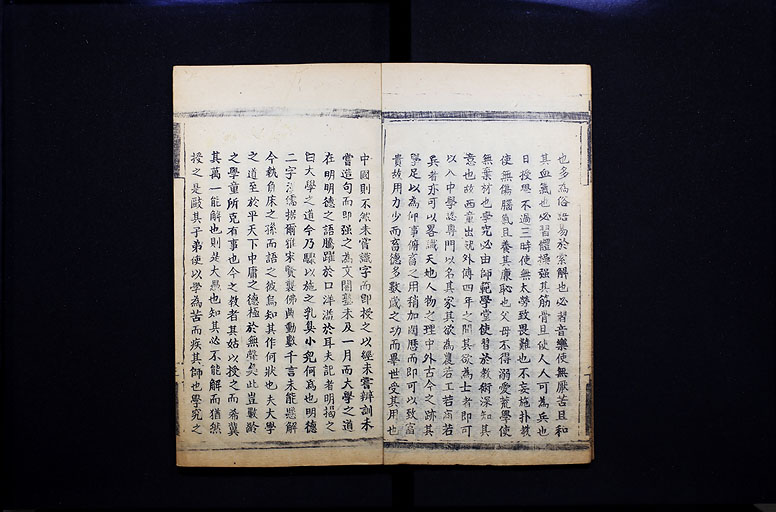 也多為俗語易於索解也必習音樂使無厭苦且和
其血氣也必習體操强其筋骨且使人人可為兵也
日授學不過三時使無太勞致畏難也不妄施扑教
使無傷腦氣且養其廉恥也父母不得溺愛荒學使
無棄材也學究必由師範學堂使習於教術深知其
意也故西童出就外傅四年之間其欲為士者即可
以入中學認專門以名其家其欲為農若工若商若
兵者亦可以略識天地人物之理中外古今之跡其
學足以為仰事俯畜之用稍加閱歷而即可以致富
貴故用力少而畜德多數歲之功而畢世受其用也
中國則不然未嘗識字而即授之以經未嘗辨訓未
嘗造句而即强之為文開塾未及一月而大學之道
在明明德之語騰躍於口洋溢於耳夫記者明揭之
曰大學之道今乃驟以施之乳臭小兒何為也明德
二字漢儒據爾雅宋賢襲佛典動數千言未能懸解
今執負床之孫而語之彼烏知其作何狀也夫大學
之道至於平天下中庸之德極於無聲臭此豈數齡
之學童所克有事也今之教者其姑以授之而希冀
其萬一能解也則是大愚也知其必不能解而猶然
授之是敺其子弟使以學為苦而疾其師也學究之